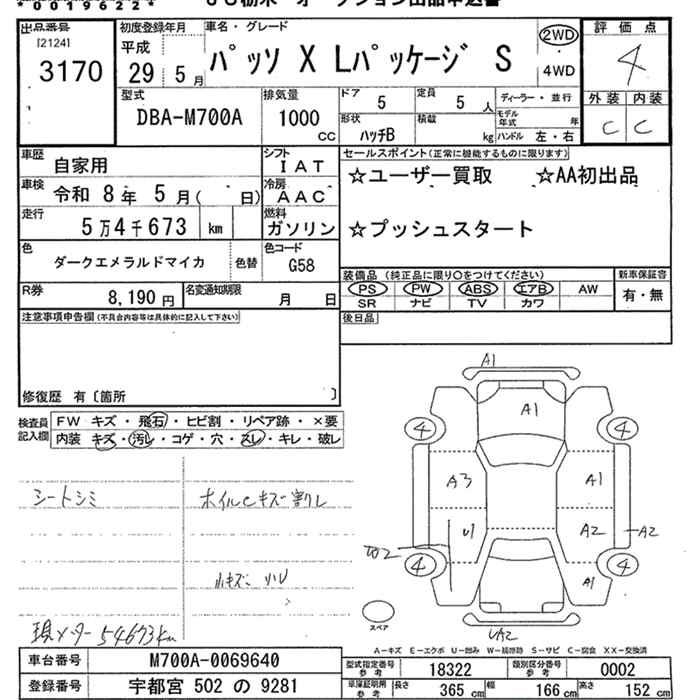 *00196222*
出品番号
[2124]
3170
初度登録年月
平成
29年5月
車名・グレード
パッソ X Lパッケージ S
2WD
4WD
評価点
4
外装 内装
C C
型式
DBA-M700A
排気量
1000 CC
ドア 5
定員 5人
ディーラー・並行
モデル年式 年
形状 ハッチB
積載 kg
ハンドル 左・右
車歴 自家用
シフト IAT
車検 令和 8年 5月( 日)
冷房 AAC
走行 5万4千673 km
燃料 ガソリン
色 ダークエメラルドマイカ 色替
色コード G58
R券 8,190円
名変通知期限 月 日
セールスポイント(正常に機能するものに限ります)
☆ユーザー買取 ☆AA初出品
☆プッシュスタート
装備品(純正品に限り○をつけてください)
新車保証書
PS PW ABS エアB AW
SR ナビ TV カワ
有・無
注意事項申告欄(不具合内容等は具体的に記入して下さい)
後日品
修復歴 有〔箇所 〕
検査員記入欄
FW キズ・飛石・ヒビ割・リペア跡・×要
内装 キズ・汚れ・コゲ・穴・スレ・キレ・破レ
シートシミ
ホイルCキズ 割レ
小キズ 小U
現メーター 54673km
A1
A1
4 4
A3 A1
U1 A2 A2
W2
4 4
A1
UA2
スペア
A-キズ E-エクボ U-凹み W-補修跡 S-サビ C-腐食 XX-交換済
車台番号 M700A-0069640
型式指定番号参考 18322
類別区分番号参考 0002
登録番号 宇都宮 502 の 9281
車庫証明用参考 長さ 365 cm 幅 166 cm 高さ 152 cm